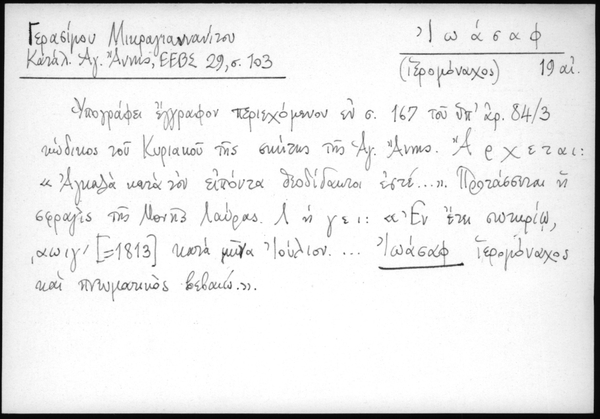 Γερασίμου Μικραγιαννανίτου
Κατάλ. Ἁγ. Ἄννης, ΕΕΒΣ 29, σ. 103
Ἰωάσαφ
(ἱερομόναχος) 19 αἰ.
Ὑπογράφει ἔγγραφον περιεχόμενον ἐν σ. 167 τοῦ ὑπ' ἀρ. 84/3
κώδικος τοῦ Κυριακοῦ τῆς σκήτης τῆς Ἁγ. Ἄννης. Ἄρχεται:
« Ἀγκαλὰ κατὰ τὸν εἰπόντα θεοδίδακτοι ἐστέ...». Προτάσσεται ἡ
σφραγὶς τῆς Μονῆς Λαύρας. Λήγει: « Ἐν ἔτη σωτηρίῳ,
͵αωιγ' [=1813] κατὰ μῆνα Ἰούλιον. ... Ἰωάσαφ ἱερομόναχος
καὶ πνευματικὸς βεβαιῶ.».